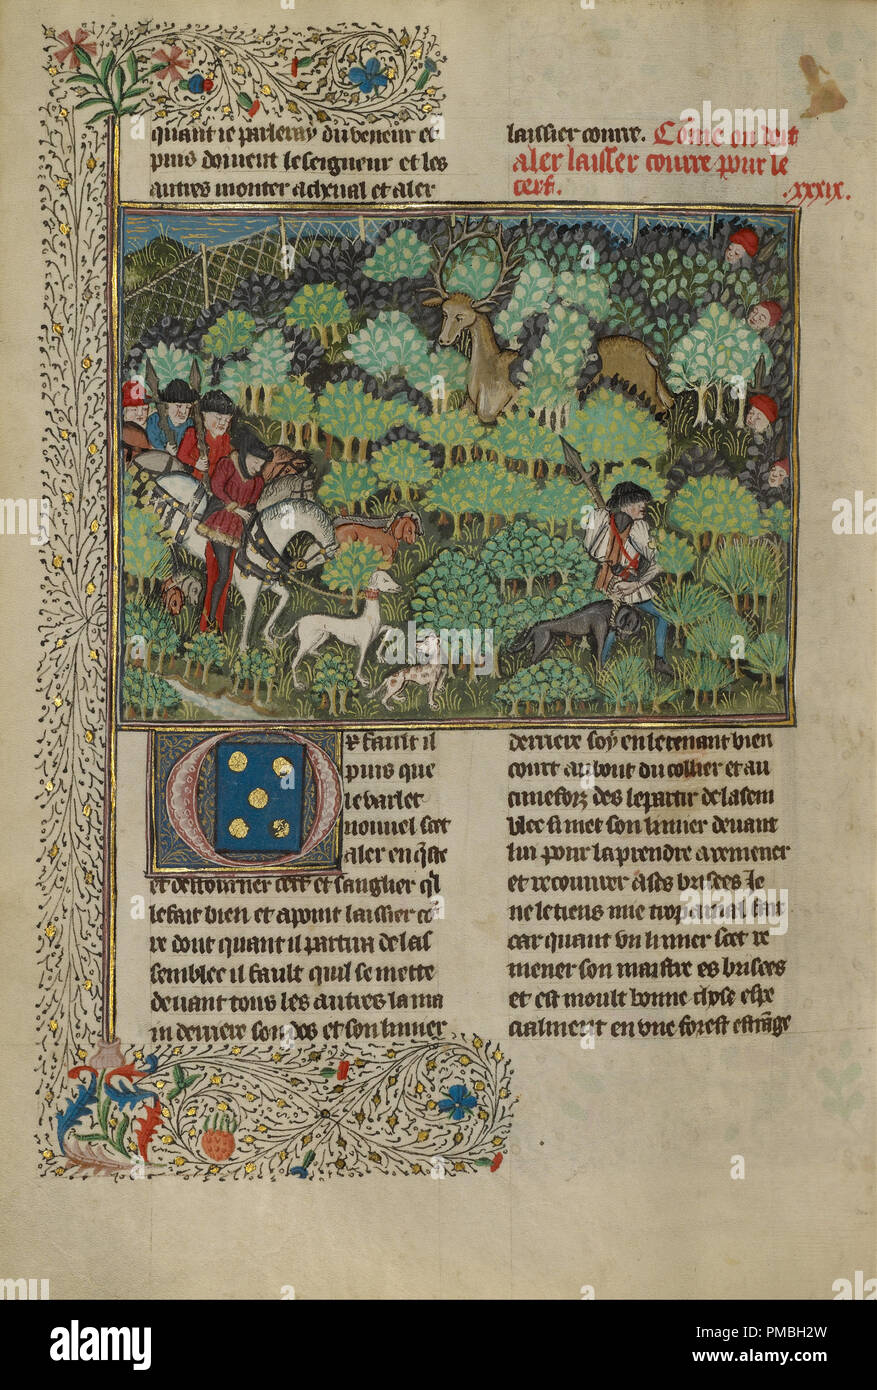 quant ie parleray du veneur et
puis doivent le seigneur et les
autres monter a cheval et aler
laissier courre. Cōme on doit
aler laisser courre pour le
cerf. .xxxix.
Or fault il
puis que
le varlet
nouvel scet
aler en q̄ste
et destourner cerf et sanglier q̄l
le fait bien et a point laissier co᷑
re dont quant il partira de las
semblee il fault quil se mette
devant tous les autres la ma
in derriere son dos et son limier
derriere soy en le tenant bien
court au bout du collier et au
des le partir de lasem
blee si met son limier devant
lui pour laprendre a remener
et recouvrer a ses brisees Je
ne le tiens mie trop a mal fait
car quant un limier scet re
mener son maistre es brisees
et est moult bonne chose espe
cialment en une forest estrāge
alamy
Image ID: PMBH2W
www.alamy.com